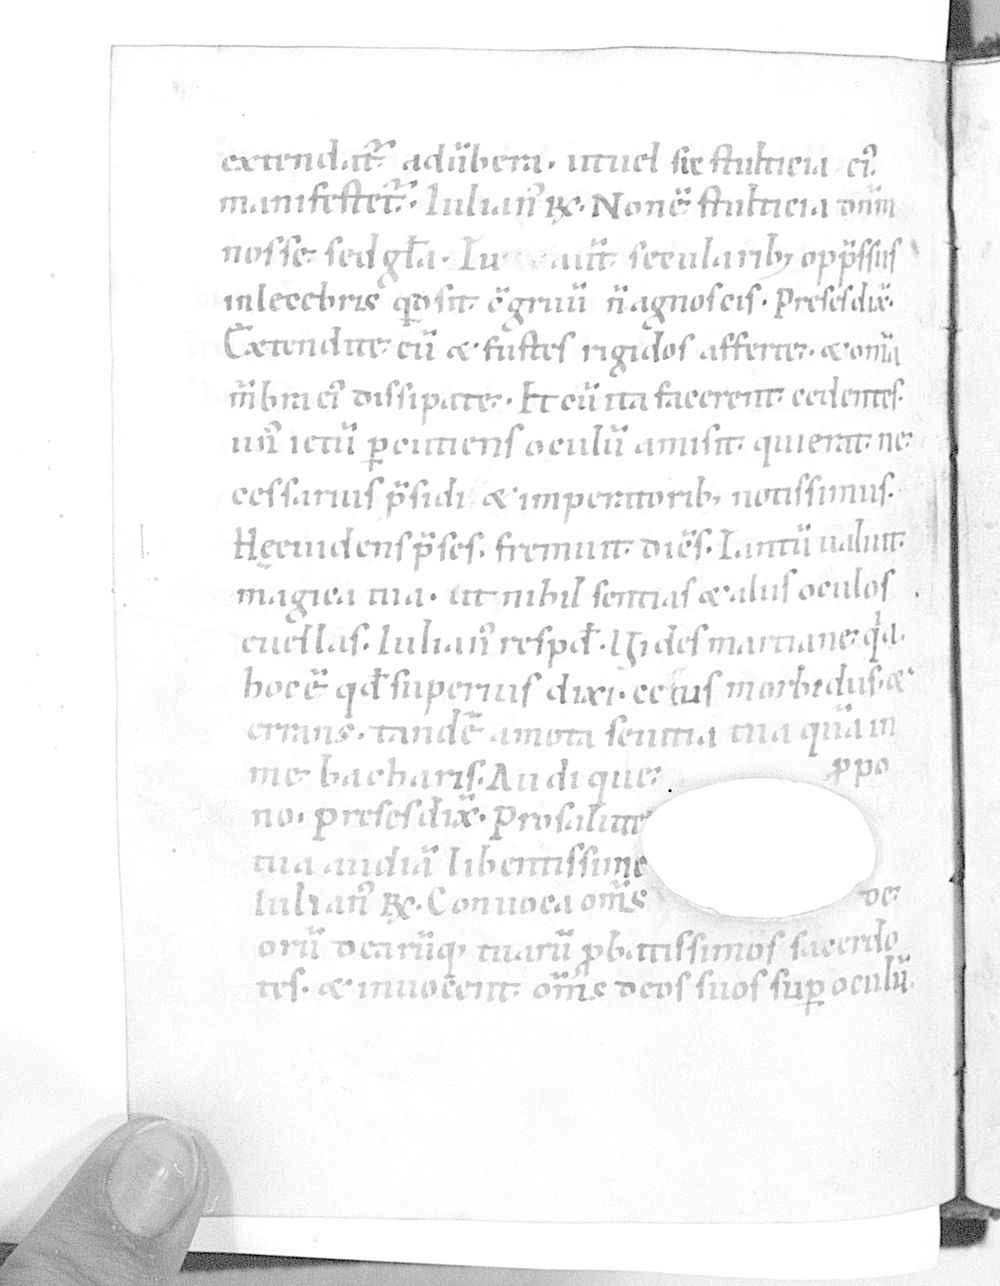 extendat᷑ aduͥbera· ut uel sic stulticia eiꝰ
manifestet᷑· Iulianꝰ ℞· Non ē stulticia dn̄m
nosse sed gl̄a· Iu aut̄ secularibꝫ opp̄ssus
inlecebris qd̓ sit ē n̄ agnoscis· Preses dix̄·
Extendite eū & fustes rigidos afferte· & om̄a
m̄bra eiꝰ dissipate· Et cū ita facerent cedentes·
unꝰ ictū ꝑcutiens oculū amisit· qui erat ne
cessarius p̄sidi & imperatoribꝫ notissimus·
Hec uidens p̄ses· fremuit dicēs· Iantū ualuit
magica tua· ut nihil sentias & alus oculos
euellas· Iulianꝰ respd̄· Vides martiane q̓a
hoc ē qd̄ superius dixi· cecus morbidus· &
errans· tandē amota seuitia tua quā in
me bacharis· Audi que ꝓpo
no· preses dix̄· Pro salute
tua audiā libentissime
Iulianꝰ ℞· Conuoca om̄s de
orū dearūqꝫ tuarū ꝓbatissimos sacerdo
tes· & inuocent om̄s deos suos suꝑ oculū